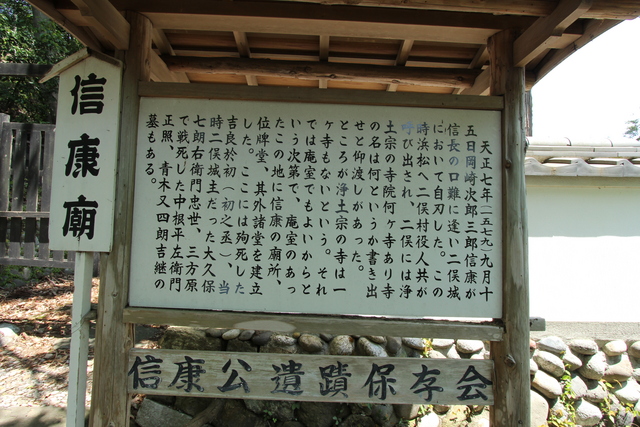 信康廟
天正七年(一五七九)九月十
五日岡崎次郎三郎信康が
信長の口難に逢い二俣城
において自刃した。この
時浜松へ二俣村役人共が
呼び出され、二俣には浄
土宗の寺院何ヶ寺あり寺
の名は何というか書き出
せと仰渡しがあった。
ところが浄土宗の寺は一
ヶ寺もないという。それ
では庵室でもよいからと
いう次第で、庵室のあっ
たこの地に信康の廟所、
位牌堂、其外諸堂を建立
した。ここには殉死した
吉良於初(初之丞)、当
時二俣城主だった大久保
七朗右衛門忠世、三方原
で戦死した中根平左衛門
正照、青木又四朗吉継の
墓もある。
信康公遺蹟保存会